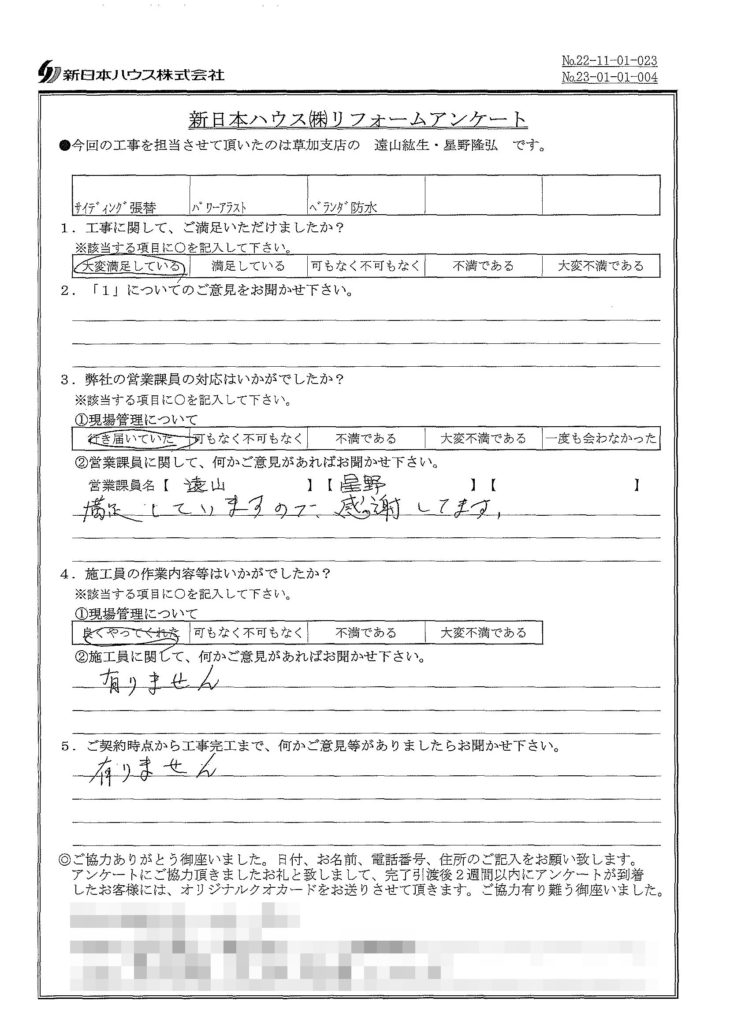 新日本ハウス株式会社
№22-11-01-023
№23-01-01-004
新日本ハウス㈱リフォームアンケート
●今回の工事を担当させて頂いたのは草加支店の 遠山紘生・星野隆弘 です。
ｻｲﾃﾞｨﾝｸﾞ張替 ﾊﾟﾜｰｱﾗｽﾄ ﾍﾞﾗﾝﾀﾞ防水
1．工事に関して、ご満足いただけましたか？
※該当する項目に○を記入して下さい。
大変満足している 満足している 可もなく不可もなく 不満である 大変不満である
2．「1」についてのご意見をお聞かせ下さい。
3．弊社の営業課員の対応はいかがでしたか？
※該当する項目に○を記入して下さい。
①現場管理について
行き届いていた 可もなく不可もなく 不満である 大変不満である 一度も会わなかった
②営業課員に関して、何かご意見があればお聞かせ下さい。
営業課員名【 遠山 】【 星野 】【 】
満足していますので、感謝してます。
4．施工員の作業内容等はいかがでしたか？
※該当する項目に○を記入して下さい。
①現場管理について
良くやってくれた 可もなく不可もなく 不満である 大変不満である
②施工員に関して、何かご意見があればお聞かせ下さい。
有りません
5．ご契約時点から工事完工まで、何かご意見等がありましたらお聞かせ下さい。
有りません
◎ご協力ありがとう御座いました。日付、お名前、電話番号、住所のご記入をお願い致します。
アンケートにご協力頂きましたお礼と致しまして、完了引渡後2週間以内にアンケートが到着
したお客様には、オリジナルクオカードをお送りさせて頂きます。ご協力有り難う御座いました。